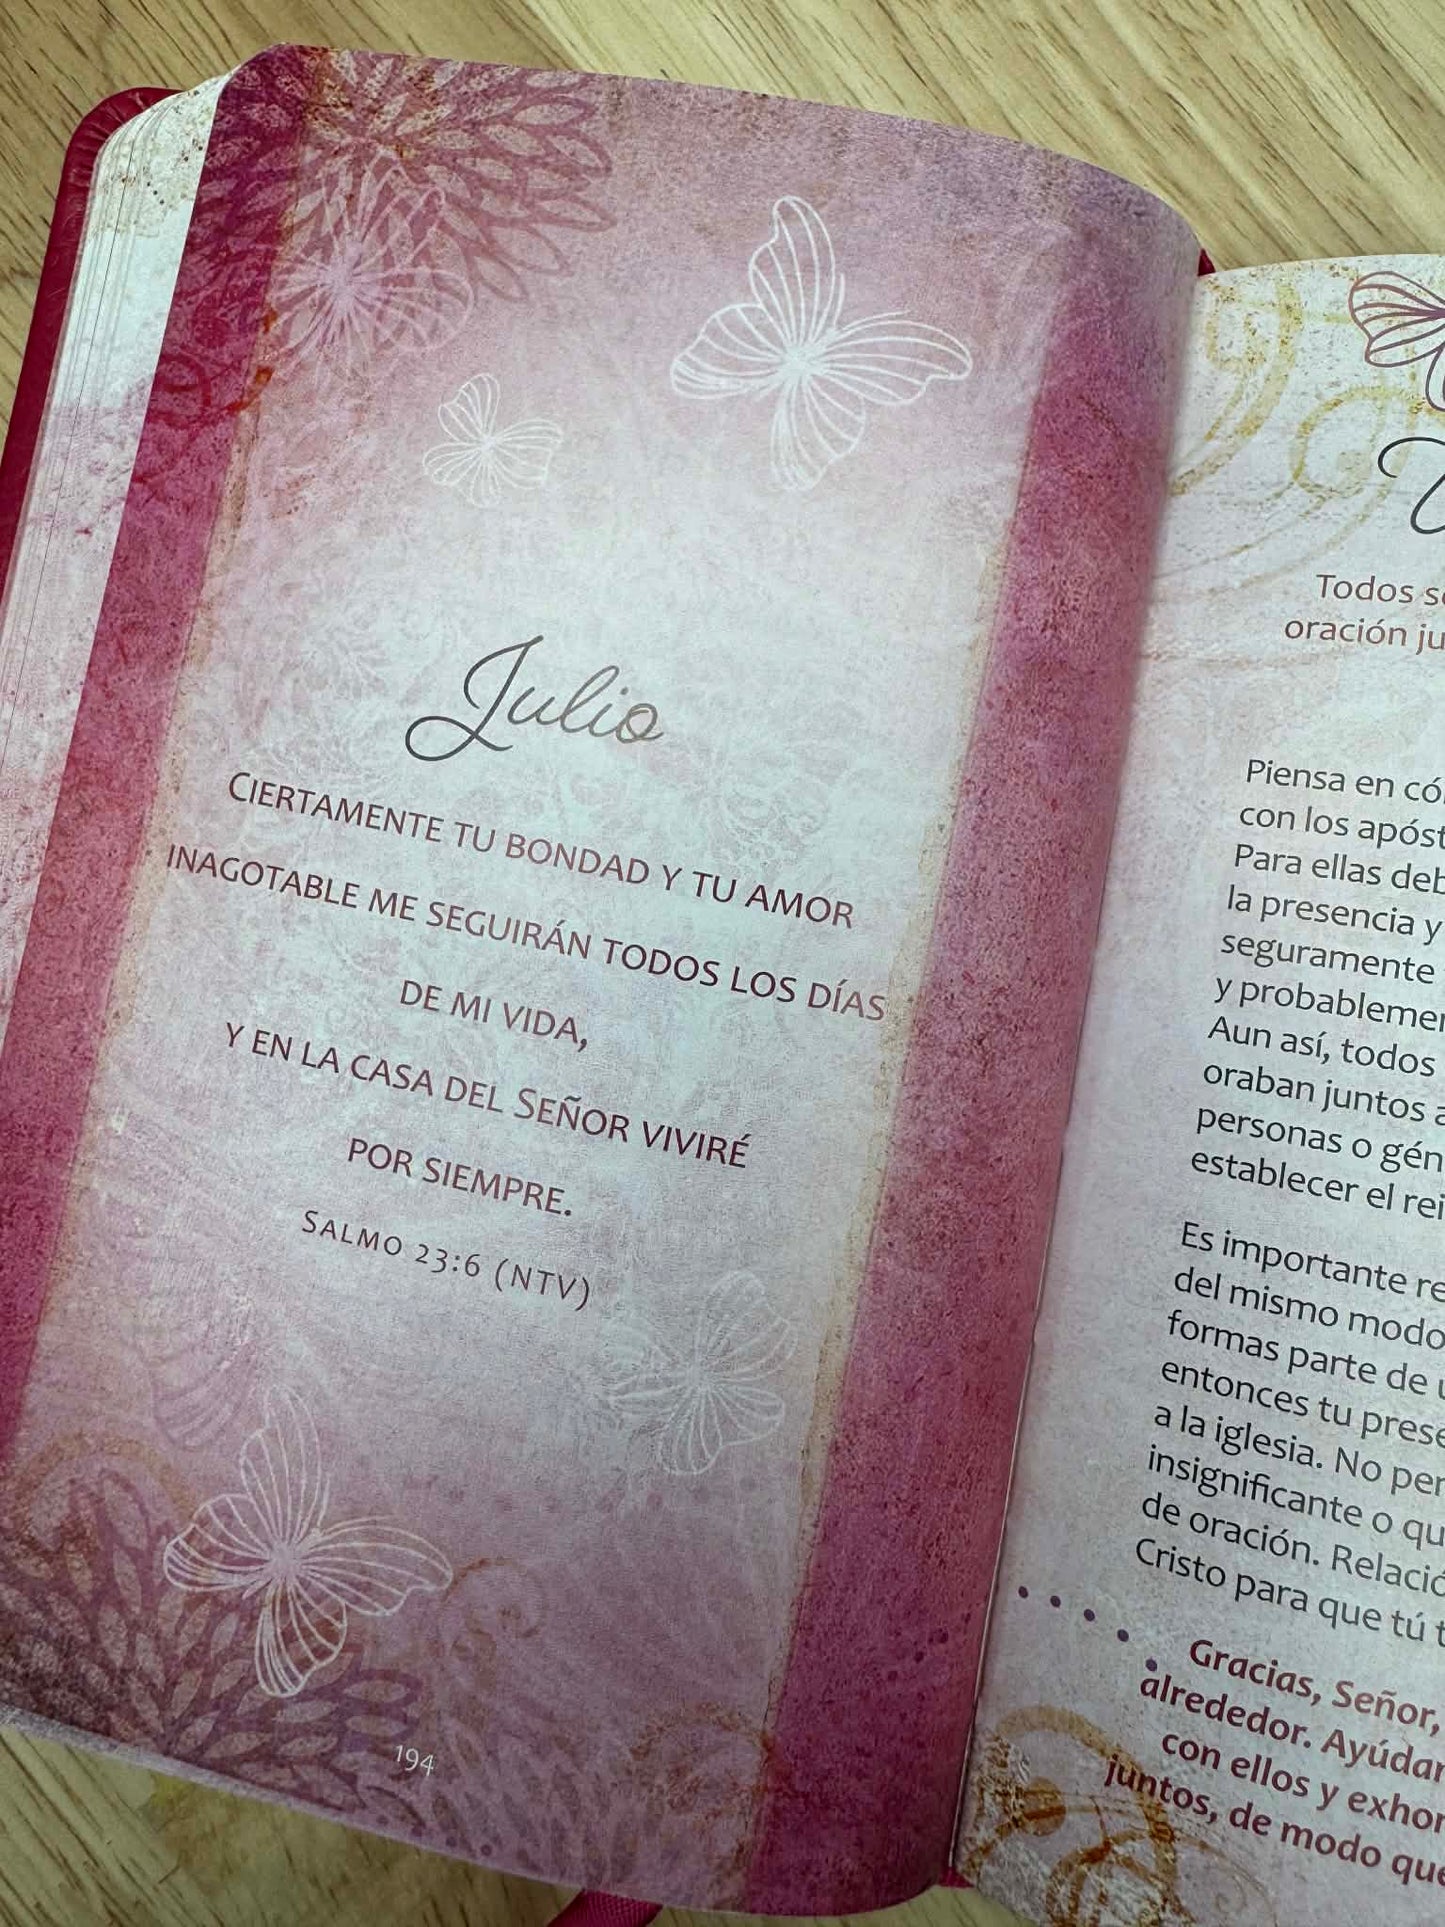 Julio
Ciertamente tu bondad y tu amor
inagotable me seguirán todos los días
de mi vida,
y en la casa del Señor viviré
por siempre.
Salmo 23:6 (NTV)
194
Todos
oración
Piensa en
con los
Para ellas
la presencia y
seguramente
y
Aun así, todos
oraban juntos
personas o
establecer el
Es importante
del mismo modo
formas parte de
entonces tu
a la iglesia. No
insignificante o
de oración.
Cristo para que tú
Gracias, Señor,
alrededor.
con ellos y
juntos, de modo